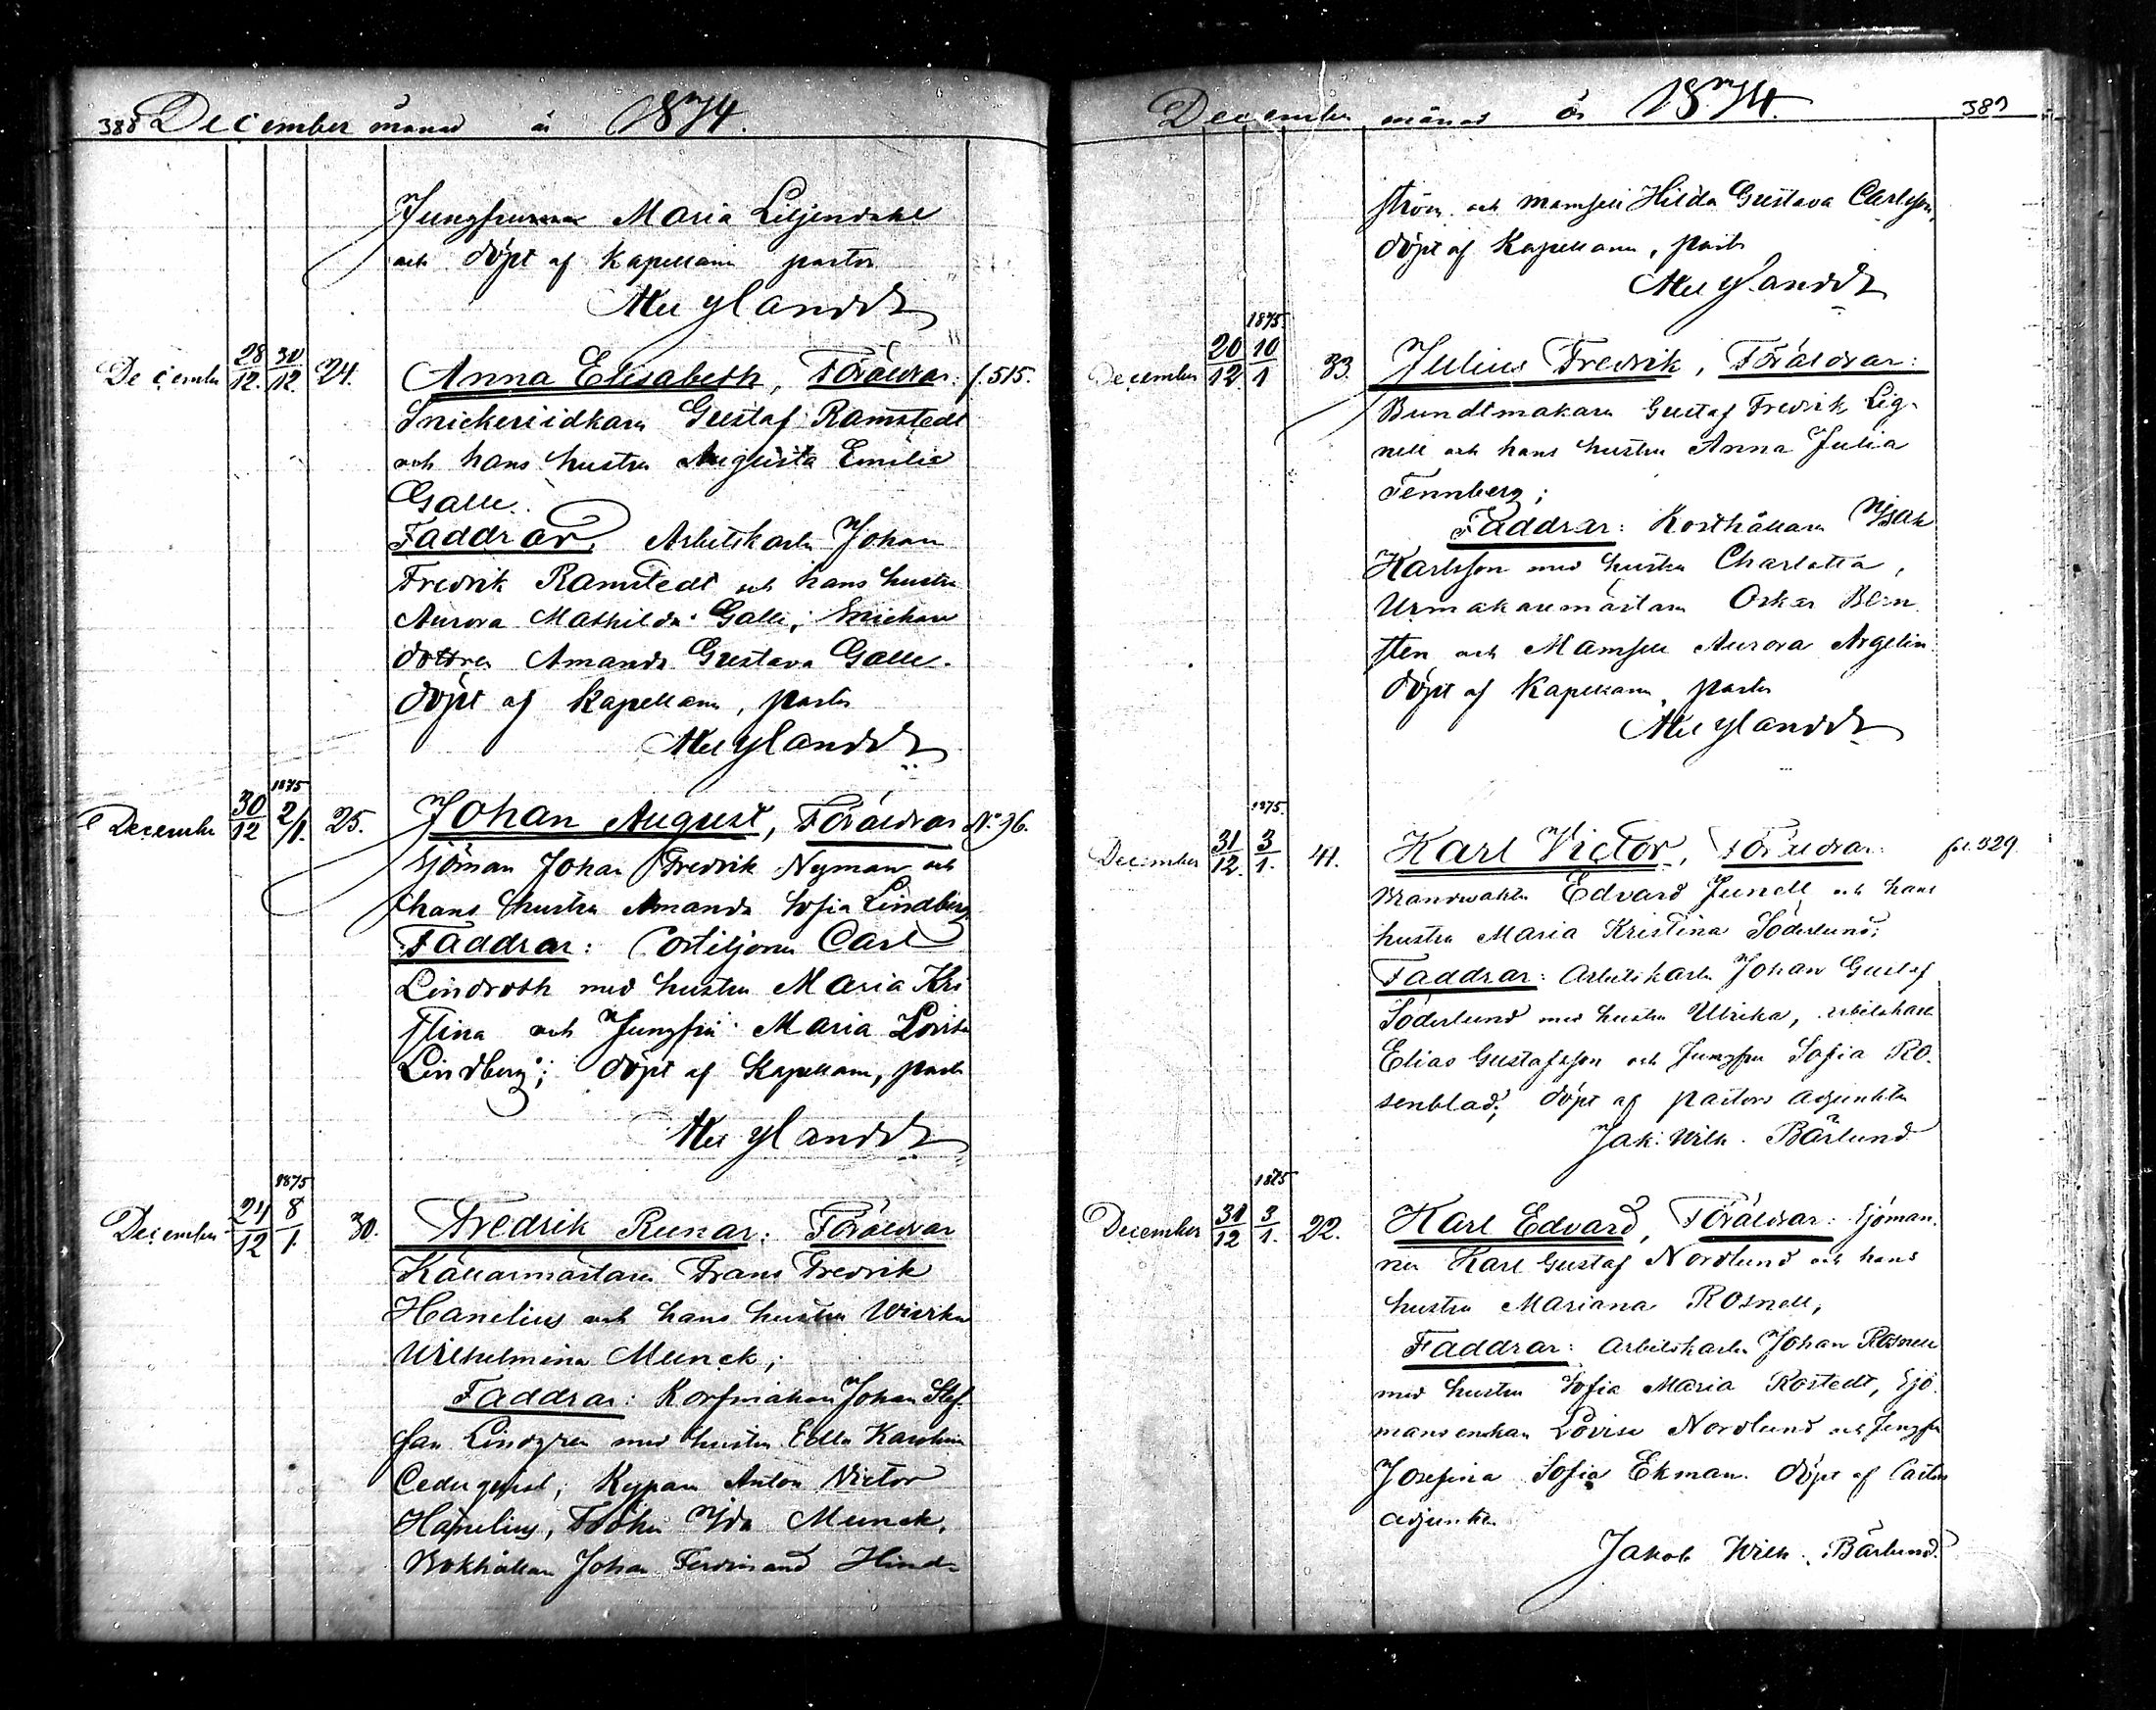 388 December månad år 1874.
Jungfrun Maria Liljendahl
och döpt af Kapellanen pastor
Myhlanddh
December 28/12. 30/12. 24. Anna Elisabeth, Föräldrar: f. 515.
Snickeriidkaren Gustaf Ramstedt
och hans hustru Augusta Emilia
Galle.
Faddrar, Arbetskarln Johan
Fredrik Ramstedt och hans hustru
Aurora Mathilda Galle; Snickare
dottren Amanda Gustava Galle.
döpt af Kapellanen, pastor
December 30/12 1875 2/1. 25. Johan August, Föräldrar No 96.
Sjöman Johan Fredrik Nyman och
hans hustru Amanda Sofia Lindberg
Faddrar: Postiljonen Carl
Lindroth med hustru Maria Kri
stina och Jungfru Maria Lovisa
Lindberg; döpt af Kapellanen, pastor
December 24/12 1875 8/1. 30. Fredrik Runar: Föräldrar
Källarmästaren Frans Fredrik
Hanelius och hans hustru
Wilhelmina Munck;
Faddrar: Korfmakaren Johan Stef
fan Lindgren med hustru Edla Karolina
Cederqvist; Kyparen Anton Victor
Hanelius, Fröken Ida Munck,
Bokhållaren Johan Ferdinand Hind-
December månad år 1874. 389
ström och mamsell Hilda Gustava Carlsson,
döpt af Kapellanen, pastor
December 20/12 1875 10/1 33. Julius Fredrik, Föräldrar:
Bundtmakaren Gustaf Fredrik Lig-
nell och hans hustru Anna Julia
Tennberg;
Faddrar: Kosthållaren Isak
Karlsson med hustru Charlotta,
Urmakaremästaren Oskar Bern
sten och Mamsell Aurora Argelin
döpt af Kapellanen, pastor
December 31/12. 1875. 3/1. 41. Karl Victor, Föräldrar: fol. 529.
Brandvakten Edvard Junell och hans
hustru Maria Kristina Söderlund;
Faddrar: Arbetskarln Johan Gustaf
Söderlund med hustru Ulrika, arbetskarln
Elias Gustafsson och Jungfru Sofia Ro-
senblad; döpt af pastors adjunkten
Jak. Wilh. Bärlund
December 31/12 1875 3/1. 22. Karl Edvard, Föräldrar: Sjöman-
nen Karl Gustaf Nordlund och hans
hustru Mariana Rosnell;
Faddrar: Arbetskarln Johan Rosnell
med hustru Sofia Maria Rostedt, Sjö-
mansenkan Lovisa Nordlund och Jungfru
Josefina Sofia Ekman. döpt af Pastors
adjunkten
Jakob Wilh. Bärlund.